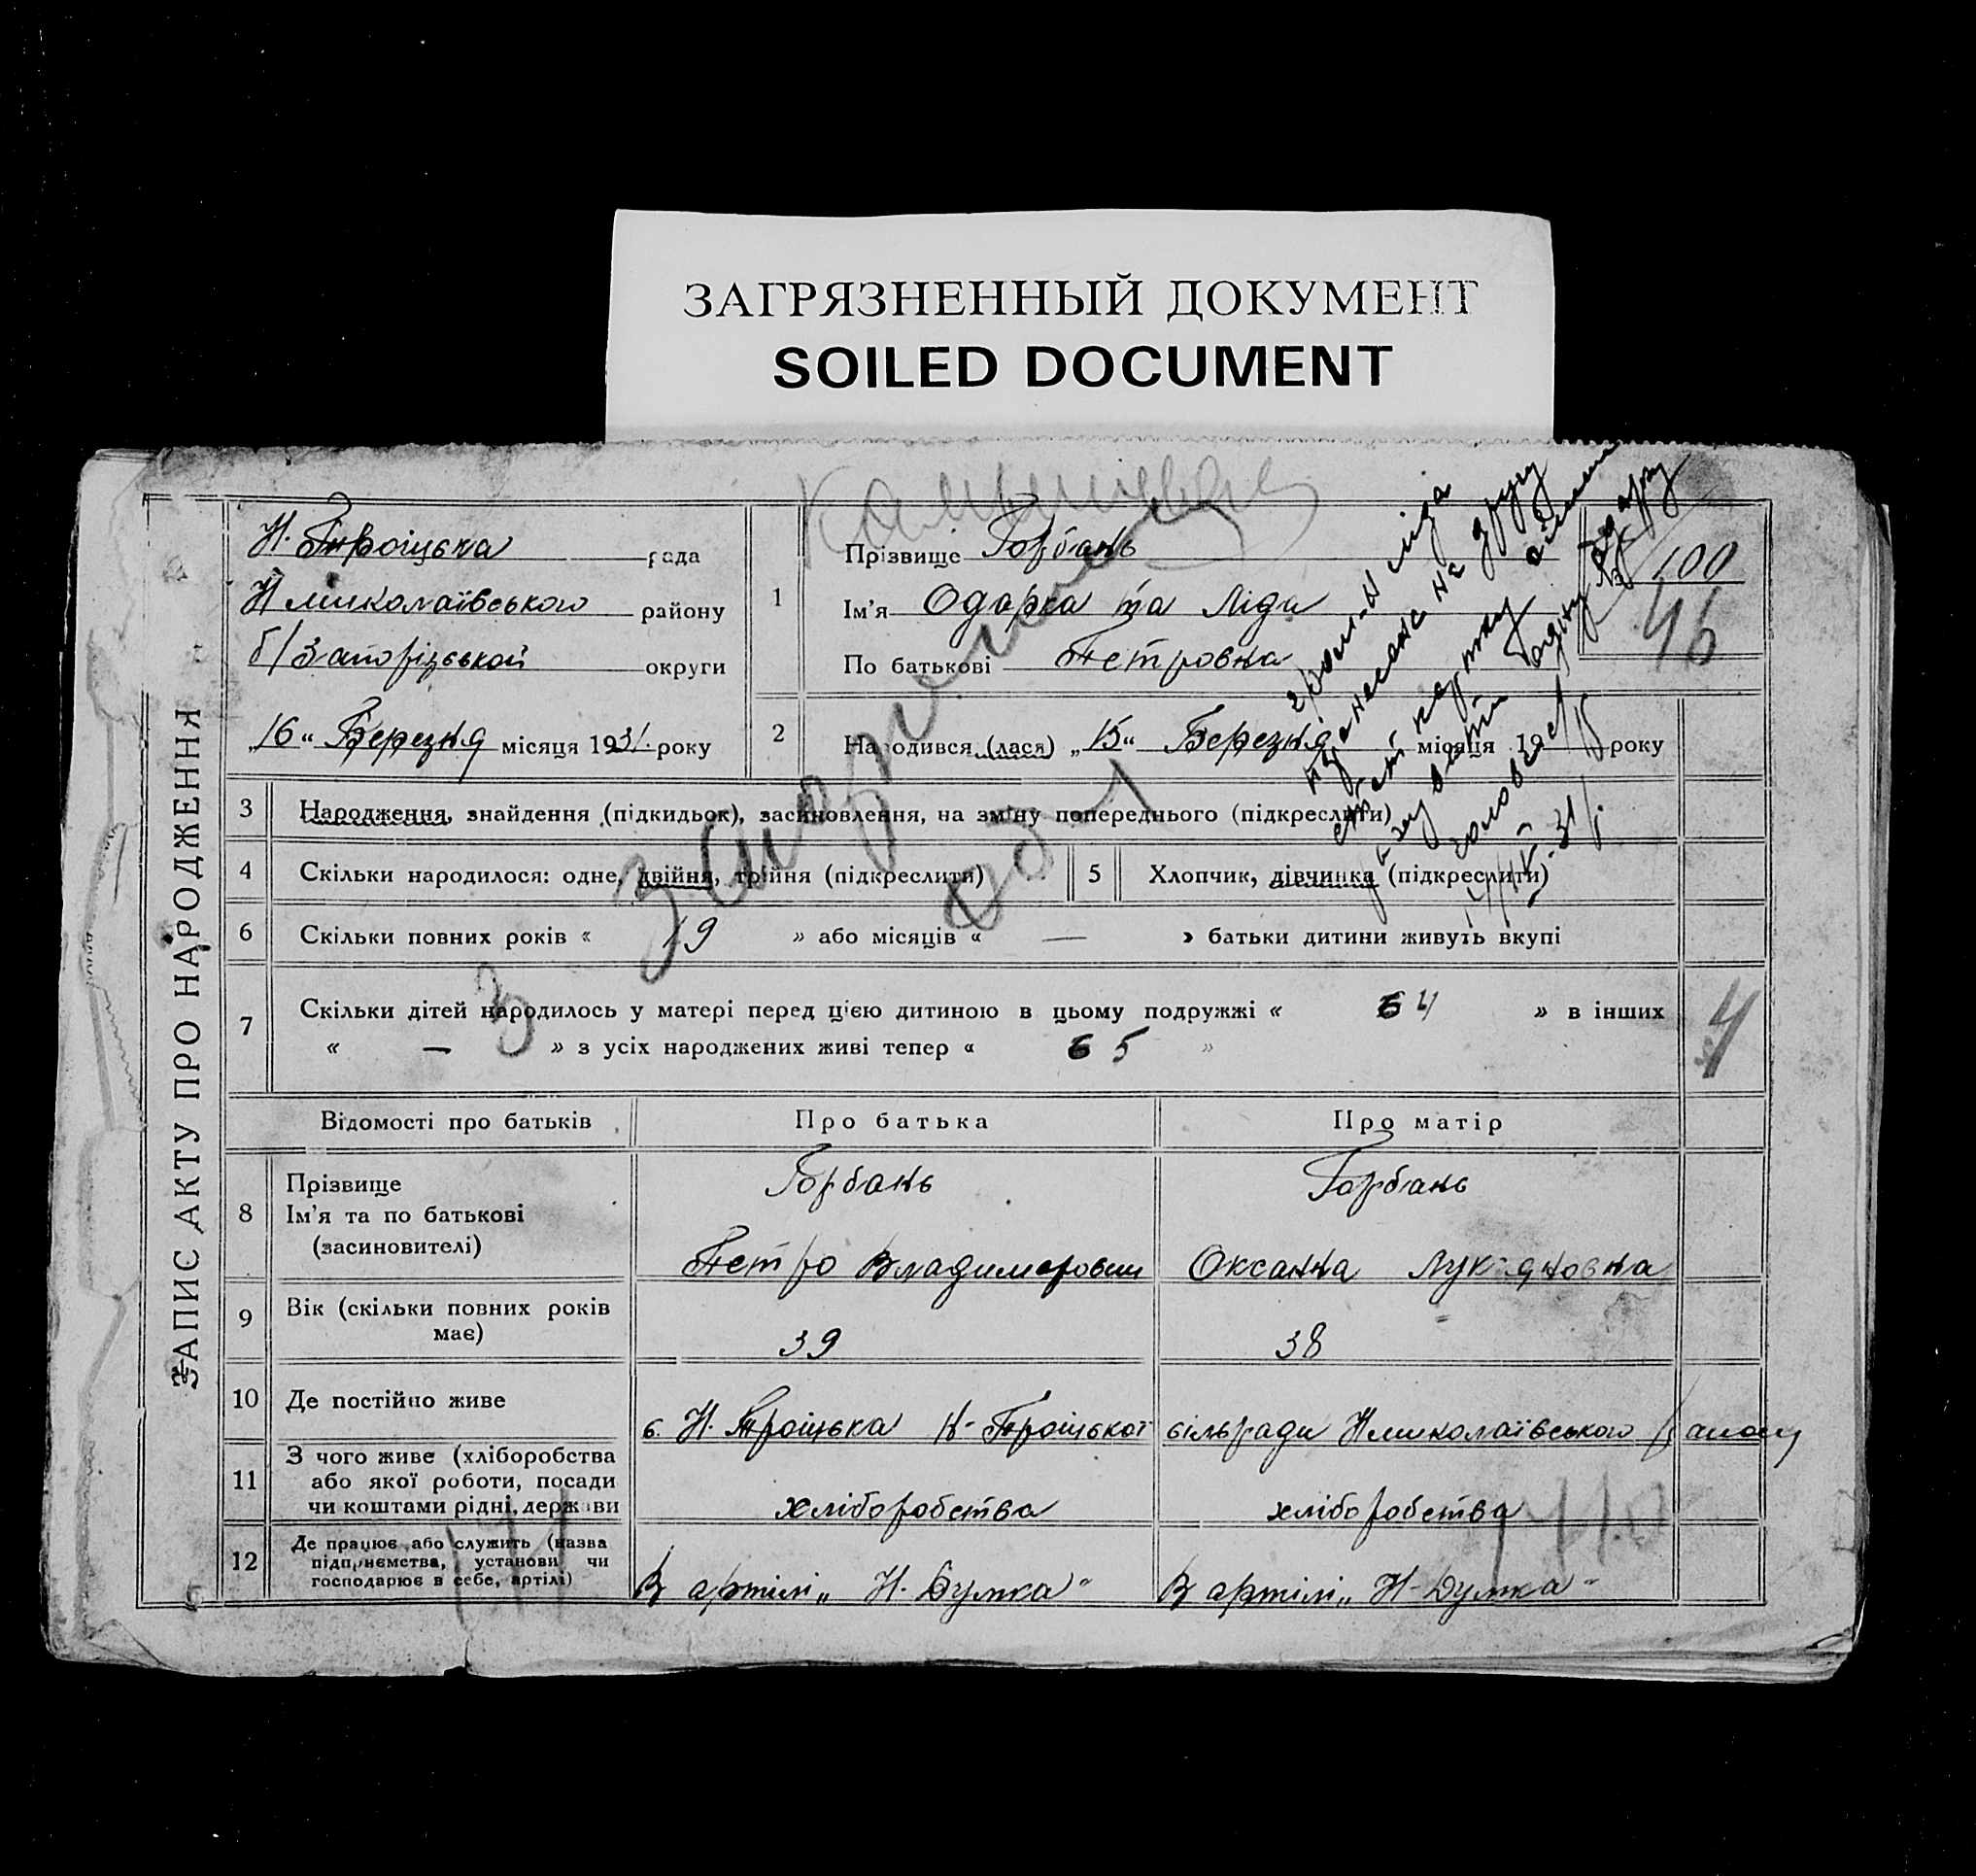 ЗАГРЯЗНЕННЫЙ ДОКУМЕНТ
SOILED DOCUMENT
ЗАПИС АКТУ ПРО НАРОДЖЕННЯ
Н. Троіцька рада
Н миколаївського району
б/Запорізської округи
„16“ Березня місяця 1931. року
1
Прізвище Горбань
Ім'я Одарка та Ліда
По батькові Петровна
№ 100
46
2
Народився (лася) „15“ Березня місяця 19 року
3 Народження, знайдення (підкидьок), засиновлення, на зміну попереднього (підкреслити)
4 Скільки народилося: одне, двійня, трійня (підкреслити)
5 Хлопчик, дівчинка (підкреслити)
6 Скільки повних років « 19 » або місяців « — » батьки дитини живуть вкупі
7 Скільки дітей народилось у матері перед цією дитиною в цьому подружжі « 4 » в інших
« — » з усіх народжених живі тепер « 5 »
4
Відомості про батьків Про батька Про матір
8 Прізвище
Ім'я та по батькові
(засиновителі)
Горбань
Петро Владимерович
Горбань
Оксанна Лукяновна
9 Вік (скільки повних років
має)
39 38
10 Де постійно живе
с. Н. Троіцька Н-Троіцької сільради Нмиколаївського району
11 З чого живе (хліборобства
або якої роботи, посади
чи коштами рідні, держави
хліборобства хліборобства
12 Де працює або служить (назва
підприємства, установи чи
господарює в себе, артілі)
В артілі „Н. Думка“ В артілі „Н-Думка“